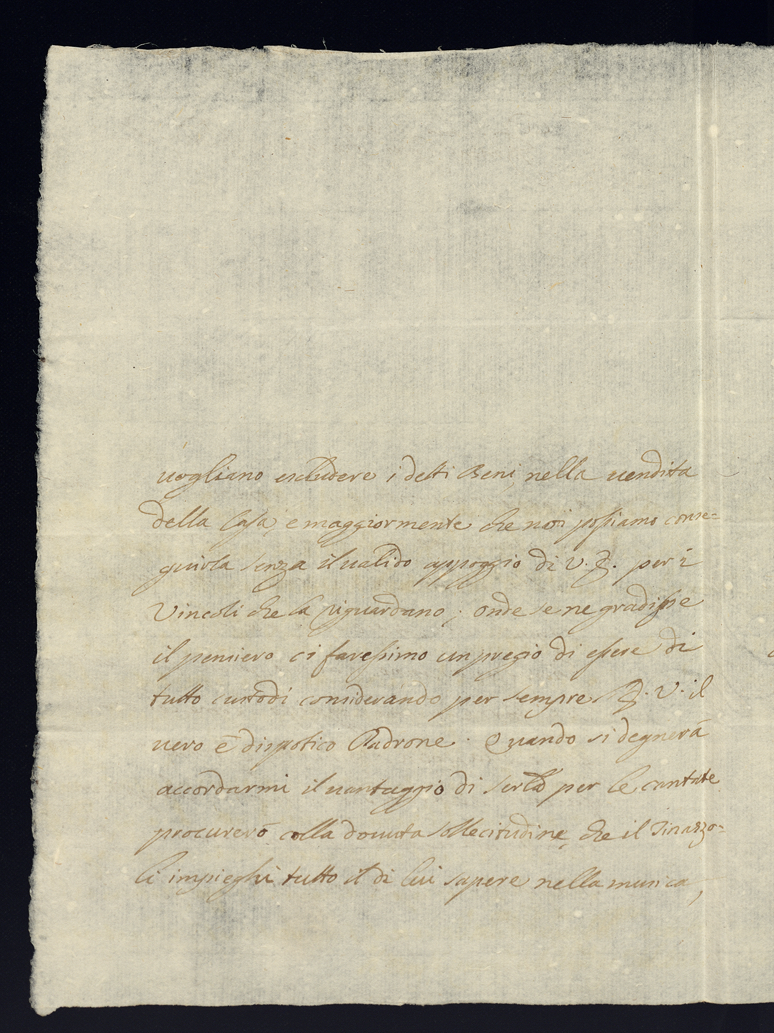 vogliano escludere i detti Beni nella vendita
della Casa, e maggiormente che noi possiamo conse=
guirla senza il valido appoggio di V. E. per i
Vincoli che la riguardano; onde se ne gradisse
il pensiero ci faressimo un pregio di essere di
tutto custodi considerando per sempre E. V. il
vero è dispotico Padrone. Quando si degnerà
accordarmi il vantaggio di per le cantate
procurerò colla dovuta sollecitudine, che il Tinazzo=
li impieghi tutto il di lui sapere nella musica,